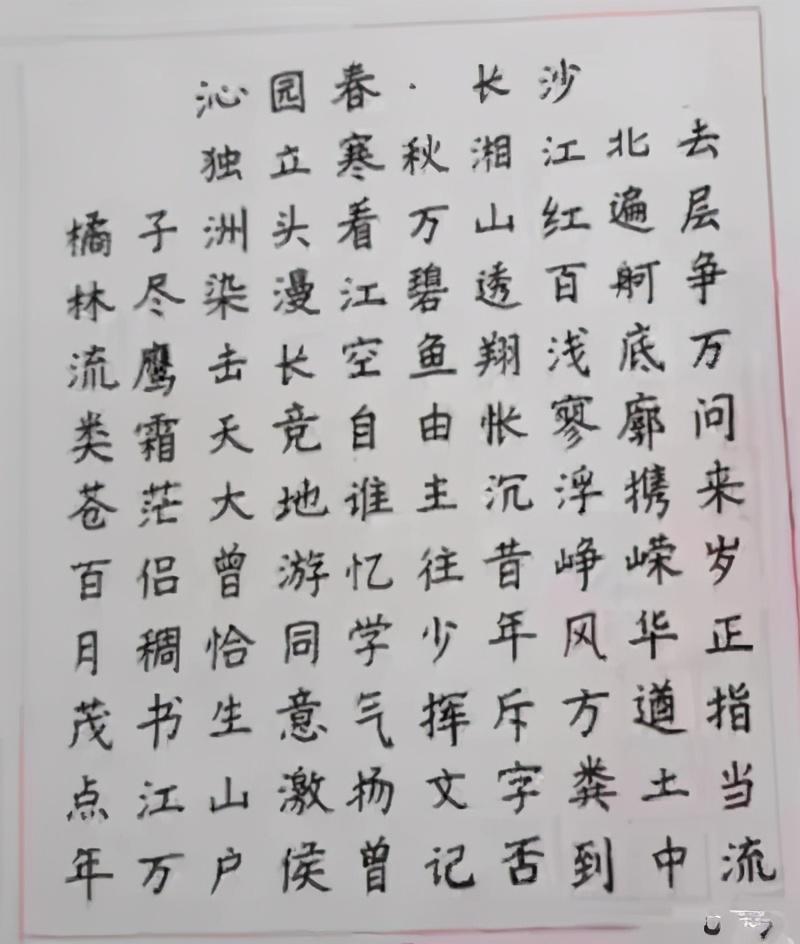 沁园春·长沙
独立寒秋湘江北去
橘子洲头看万山红遍层
林尽染漫江碧透百舸争
流鹰击长空鱼翔浅底万
类霜天竞自由怅寥廓问
苍茫大地谁主沉浮携来
百侣曾游忆往昔峥嵘岁
月稠恰同学少年风华正
茂书生意气挥斥方遒指
点江山激扬文字粪土当
年万户侯曾记否到中流